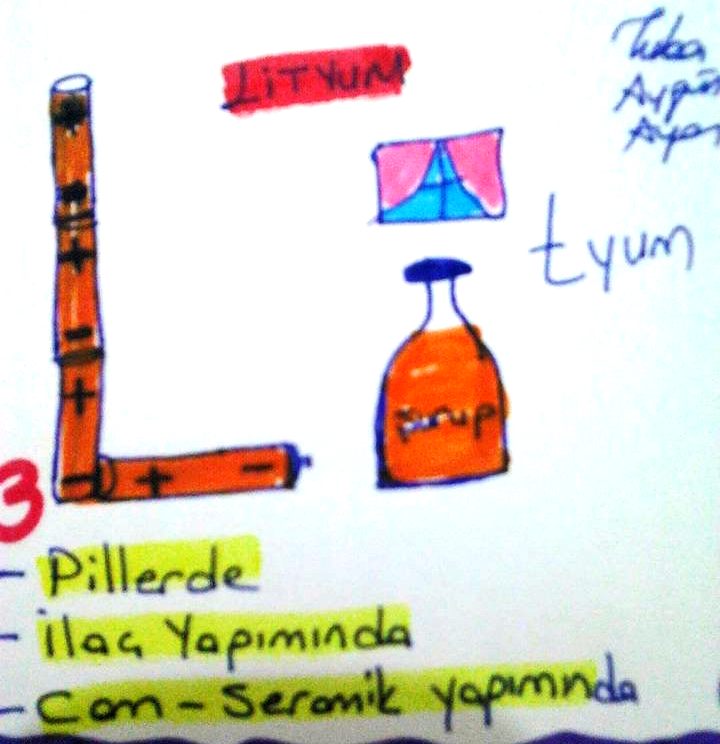 LİTYUM
Tuba
tyum
şurup
3
- Pillerde
- ilaç Yapımında
- Cam - Seramik yapımında